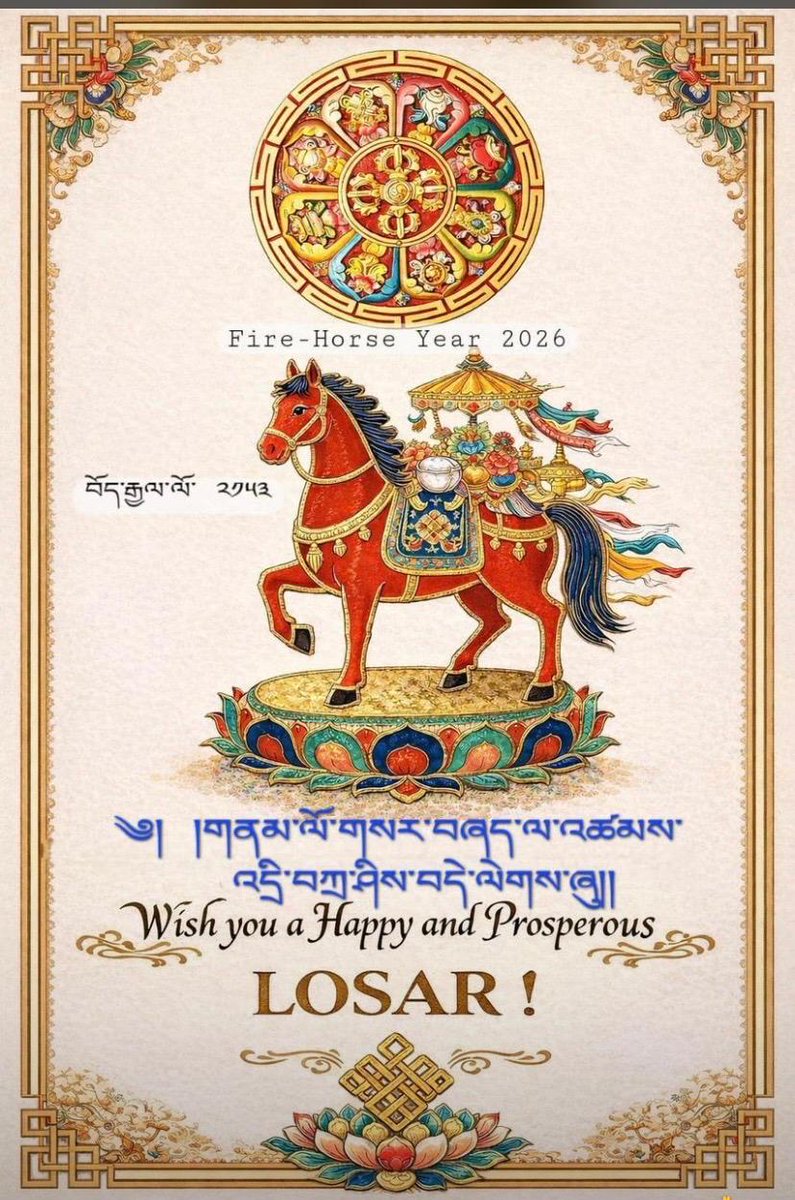 Fire-Horse Year 2026
བོད་རྒྱལ་ལོ་ ༢༡༥༣
༄། །གནམ་ལོ་གསར་བཞད་ལ་འཚམས་
འདྲི་བཀྲ་ཤིས་བདེ་ལེགས་ཞུ།།
Wish you a Happy and Prosperous
LOSAR !